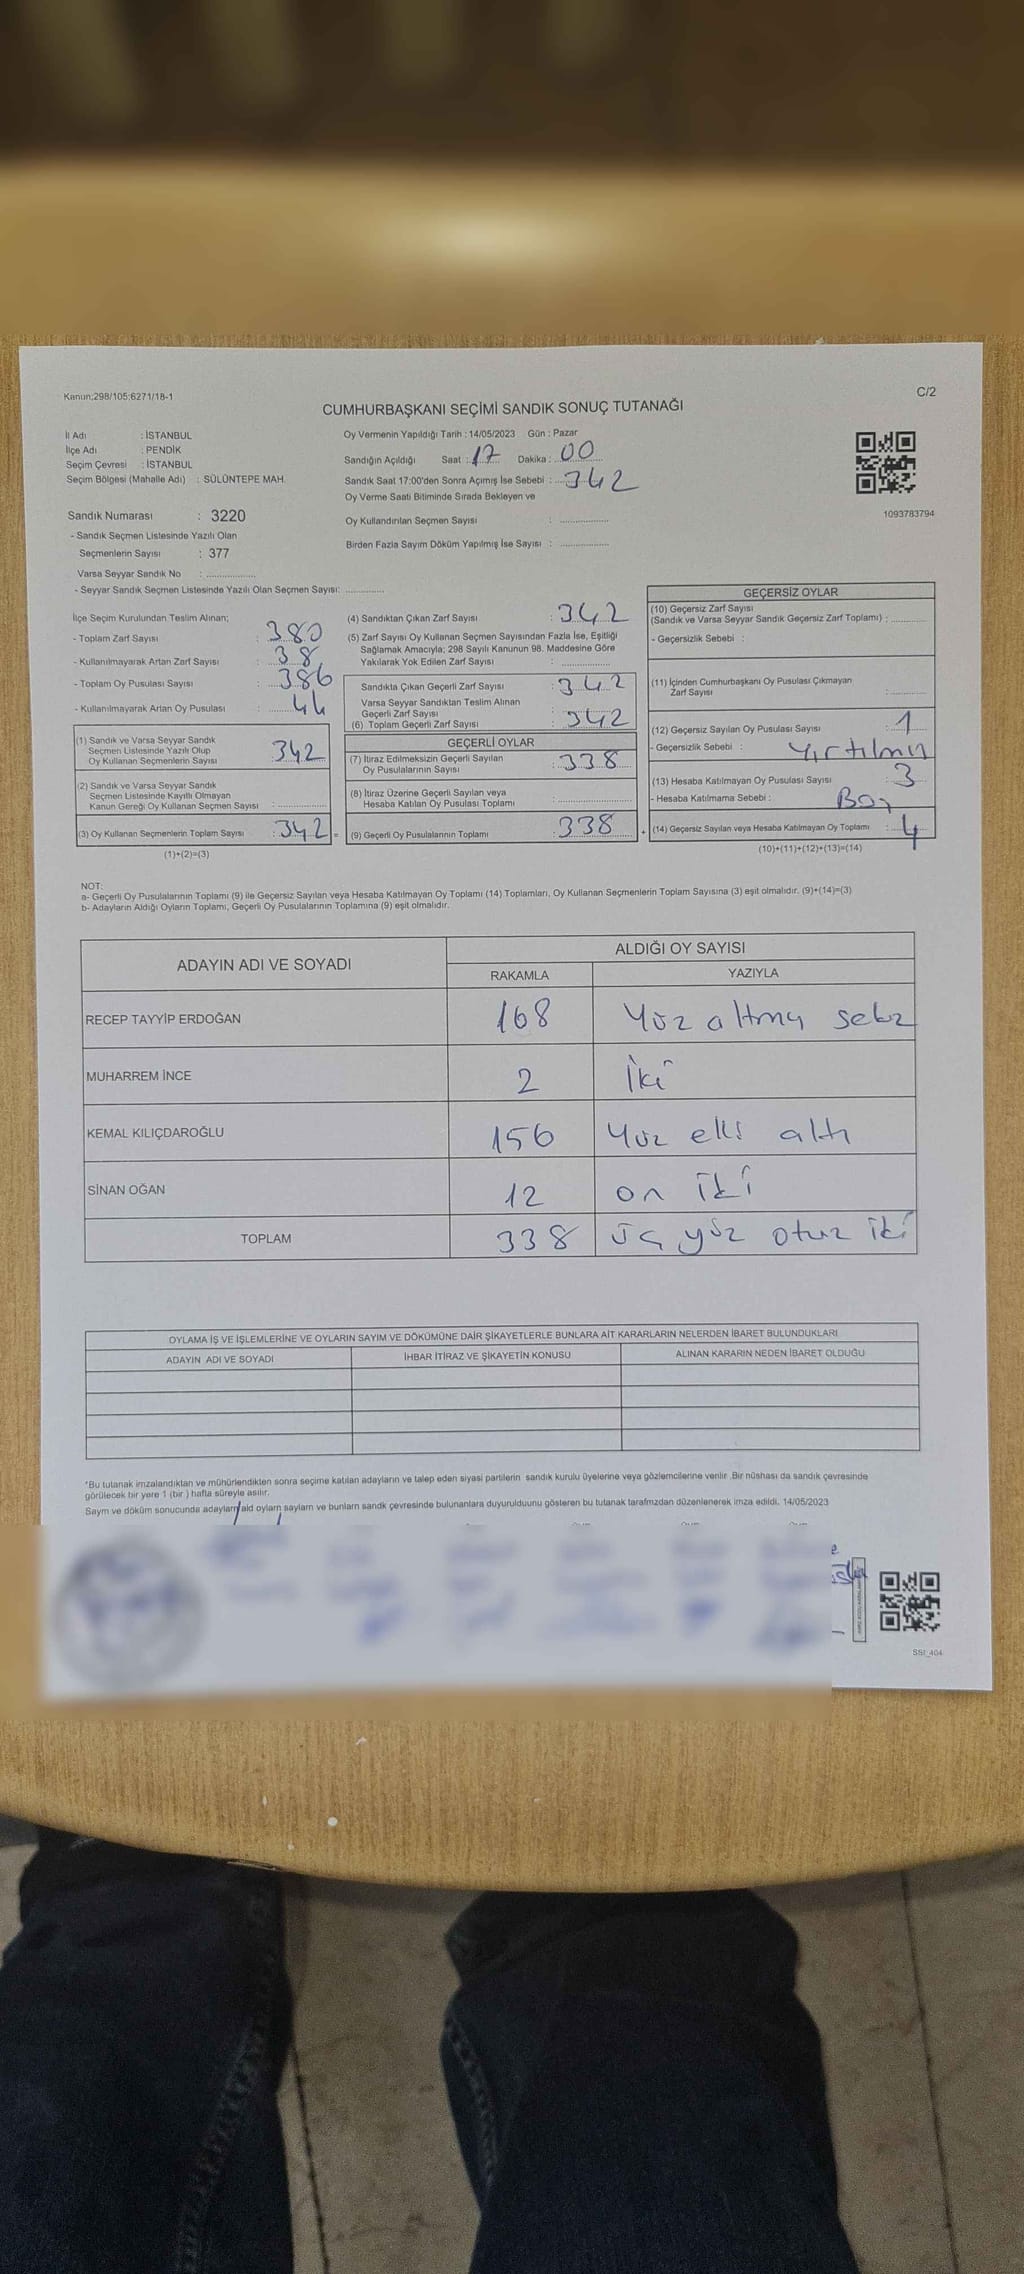 Kanun;298/105;6271/18-1
C/2
CUMHURBAŞKANI SEÇİMİ SANDIK SONUÇ TUTANAĞI
İl Adı : İSTANBUL
İlçe Adı : PENDİK
Seçim Çevresi : İSTANBUL
Seçim Bölgesi (Mahalle Adı) : SÜLÜNTEPE MAH.
Oy Vermenin Yapıldığı Tarih : 14/05/2023 Gün : Pazar
Sandığın Açıldığı Saat : 17 Dakika : 00
Sandık Saat 17:00'den Sonra Açımış İse Sebebi : 342
Oy Verme Saati Bitiminde Sırada Bekleyen ve
Oy Kullandırılan Seçmen Sayısı : ................
Birden Fazla Sayım Döküm Yapılmış İse Sayısı : ................
1093783794
Sandık Numarası : 3220
- Sandık Seçmen Listesinde Yazılı Olan
Seçmenlerin Sayısı : 377
Varsa Seyyar Sandık No : ................
- Seyyar Sandık Seçmen Listesinde Yazılı Olan Seçmen Sayısı: .............
İlçe Seçim Kurulundan Teslim Alınan;
- Toplam Zarf Sayısı : 380
- Kullanılmayarak Artan Zarf Sayısı : 38
- Toplam Oy Pusulası Sayısı : 386
- Kullanılmayarak Artan Oy Pusulası : 44
(1) Sandık ve Varsa Seyyar Sandık
Seçmen Listesinde Yazılı Olup
Oy Kullanan Seçmenlerin Sayısı : 342
(2) Sandık ve Varsa Seyyar Sandık
Seçmen Listesinde Kayıtlı Olmayan
Kanun Gereği Oy Kullanan Seçmen Sayısı : .............
(3) Oy Kullanan Seçmenlerin Toplam Sayısı : 342 =
(1)+(2)=(3)
(4) Sandıktan Çıkan Zarf Sayısı : 342
(5) Zarf Sayısı Oy Kullanan Seçmen Sayısından Fazla İse, Eşitliği
Sağlamak Amacıyla; 298 Sayılı Kanunun 98. Maddesine Göre
Yakılarak Yok Edilen Zarf Sayısı : .............
Sandıkta Çıkan Geçerli Zarf Sayısı : 342
Varsa Seyyar Sandıktan Teslim Alınan
Geçerli Zarf Sayısı
(6) Toplam Geçerli Zarf Sayısı : 342
GEÇERLİ OYLAR
(7) İtiraz Edilmeksizin Geçerli Sayılan
Oy Pusulalarının Sayısı : 338
(8) İtiraz Üzerine Geçerli Sayılan veya
Hesaba Katılan Oy Pusulası Toplamı : .............
(9) Geçerli Oy Pusulalarının Toplamı : 338 +
GEÇERSİZ OYLAR
(10) Geçersiz Zarf Sayısı
(Sandık ve Varsa Seyyar Sandık Geçersiz Zarf Toplamı) : .............
- Geçersizlik Sebebi :
(11) İçinden Cumhurbaşkanı Oy Pusulası Çıkmayan
Zarf Sayısı : .............
(12) Geçersiz Sayılan Oy Pusulası Sayısı : 1
- Geçersizlik Sebebi : Yırtılmış
(13) Hesaba Katılmayan Oy Pusulası Sayısı : 3
- Hesaba Katılmama Sebebi : Boş
(14) Geçersiz Sayılan veya Hesaba Katılmayan Oy Toplamı : 4
(10)+(11)+(12)+(13)=(14)
NOT:
a- Geçerli Oy Pusulalarının Toplamı (9) ile Geçersiz Sayılan veya Hesaba Katılmayan Oy Toplamı (14) Toplamları, Oy Kullanan Seçmenlerin Toplam Sayısına (3) eşit olmalıdır. (9)+(14)=(3)
b- Adayların Aldığı Oyların Toplamı, Geçerli Oy Pusulalarının Toplamına (9) eşit olmalıdır.
ADAYIN ADI VE SOYADI ALDIĞI OY SAYISI
RAKAMLA YAZIYLA
RECEP TAYYİP ERDOĞAN 168 Yüz altmış sekiz
MUHARREM İNCE 2 İki
KEMAL KILIÇDAROĞLU 156 Yüz elli altı
SİNAN OĞAN 12 on iki
TOPLAM 338 üç yüz otuz iki
OYLAMA İŞ VE İŞLEMLERİNE VE OYLARIN SAYIM VE DÖKÜMÜNE DAİR ŞİKAYETLERLE BUNLARA AİT KARARLARIN NELERDEN İBARET BULUNDUKLARI
ADAYIN ADI VE SOYADI İHBAR İTİRAZ VE ŞİKAYETİN KONUSU ALINAN KARARIN NEDEN İBARET OLDUĞU
*Bu tutanak imzalandıktan ve mühürlendikten sonra seçime katılan adayların ve talep eden siyasi partilerin sandık kurulu üyelerine veya gözlemcilerine verilir .Bir nüshası da sandık çevresinde
görülecek bir yere 1 (bir ) hafta süreyle asılır.
Sayım ve döküm sonucunda adayların ald oyların sayların ve bunların sandk çevresinde bulunanlara duyurulduunu gösteren bu tutanak tarafmzdan düzenlenerek imza edildi. 14/05/2023
SSI_404